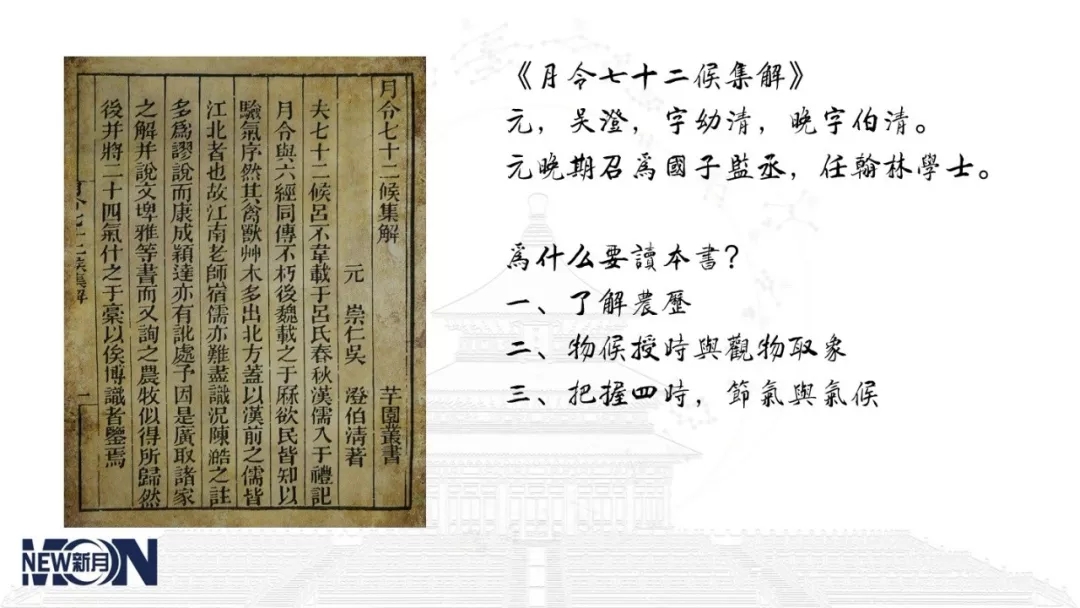 月令七十二候集解 芋園叢書
元 崇仁吳 澄伯清著
夫七十二候呂不韋載于呂氏春秋漢儒入于禮記
月令與六經同傳不朽後魏載之于厤欲民皆知以
驗氣序然其禽獸艸木多出北方蓋以漢前之儒皆
江北者也故江南老師宿儒亦難盡識況陳澔之註
多爲謬說而康成穎達亦有訛處予因是廣取諸家
之解并說文埤雅等書而又詢之農牧似得所歸然
後并將二十四氣什之于稾以俟博識者鑒焉
《月令七十二候集解》
元，吴澄，字幼清，晚字伯清。
元晚期召爲國子監丞，任翰林學士。
爲什么要讀本書？
一、了解農歷
二、物候授時與觀物取象
三、把握四時，節氣與氣候
NEW新月
MOON